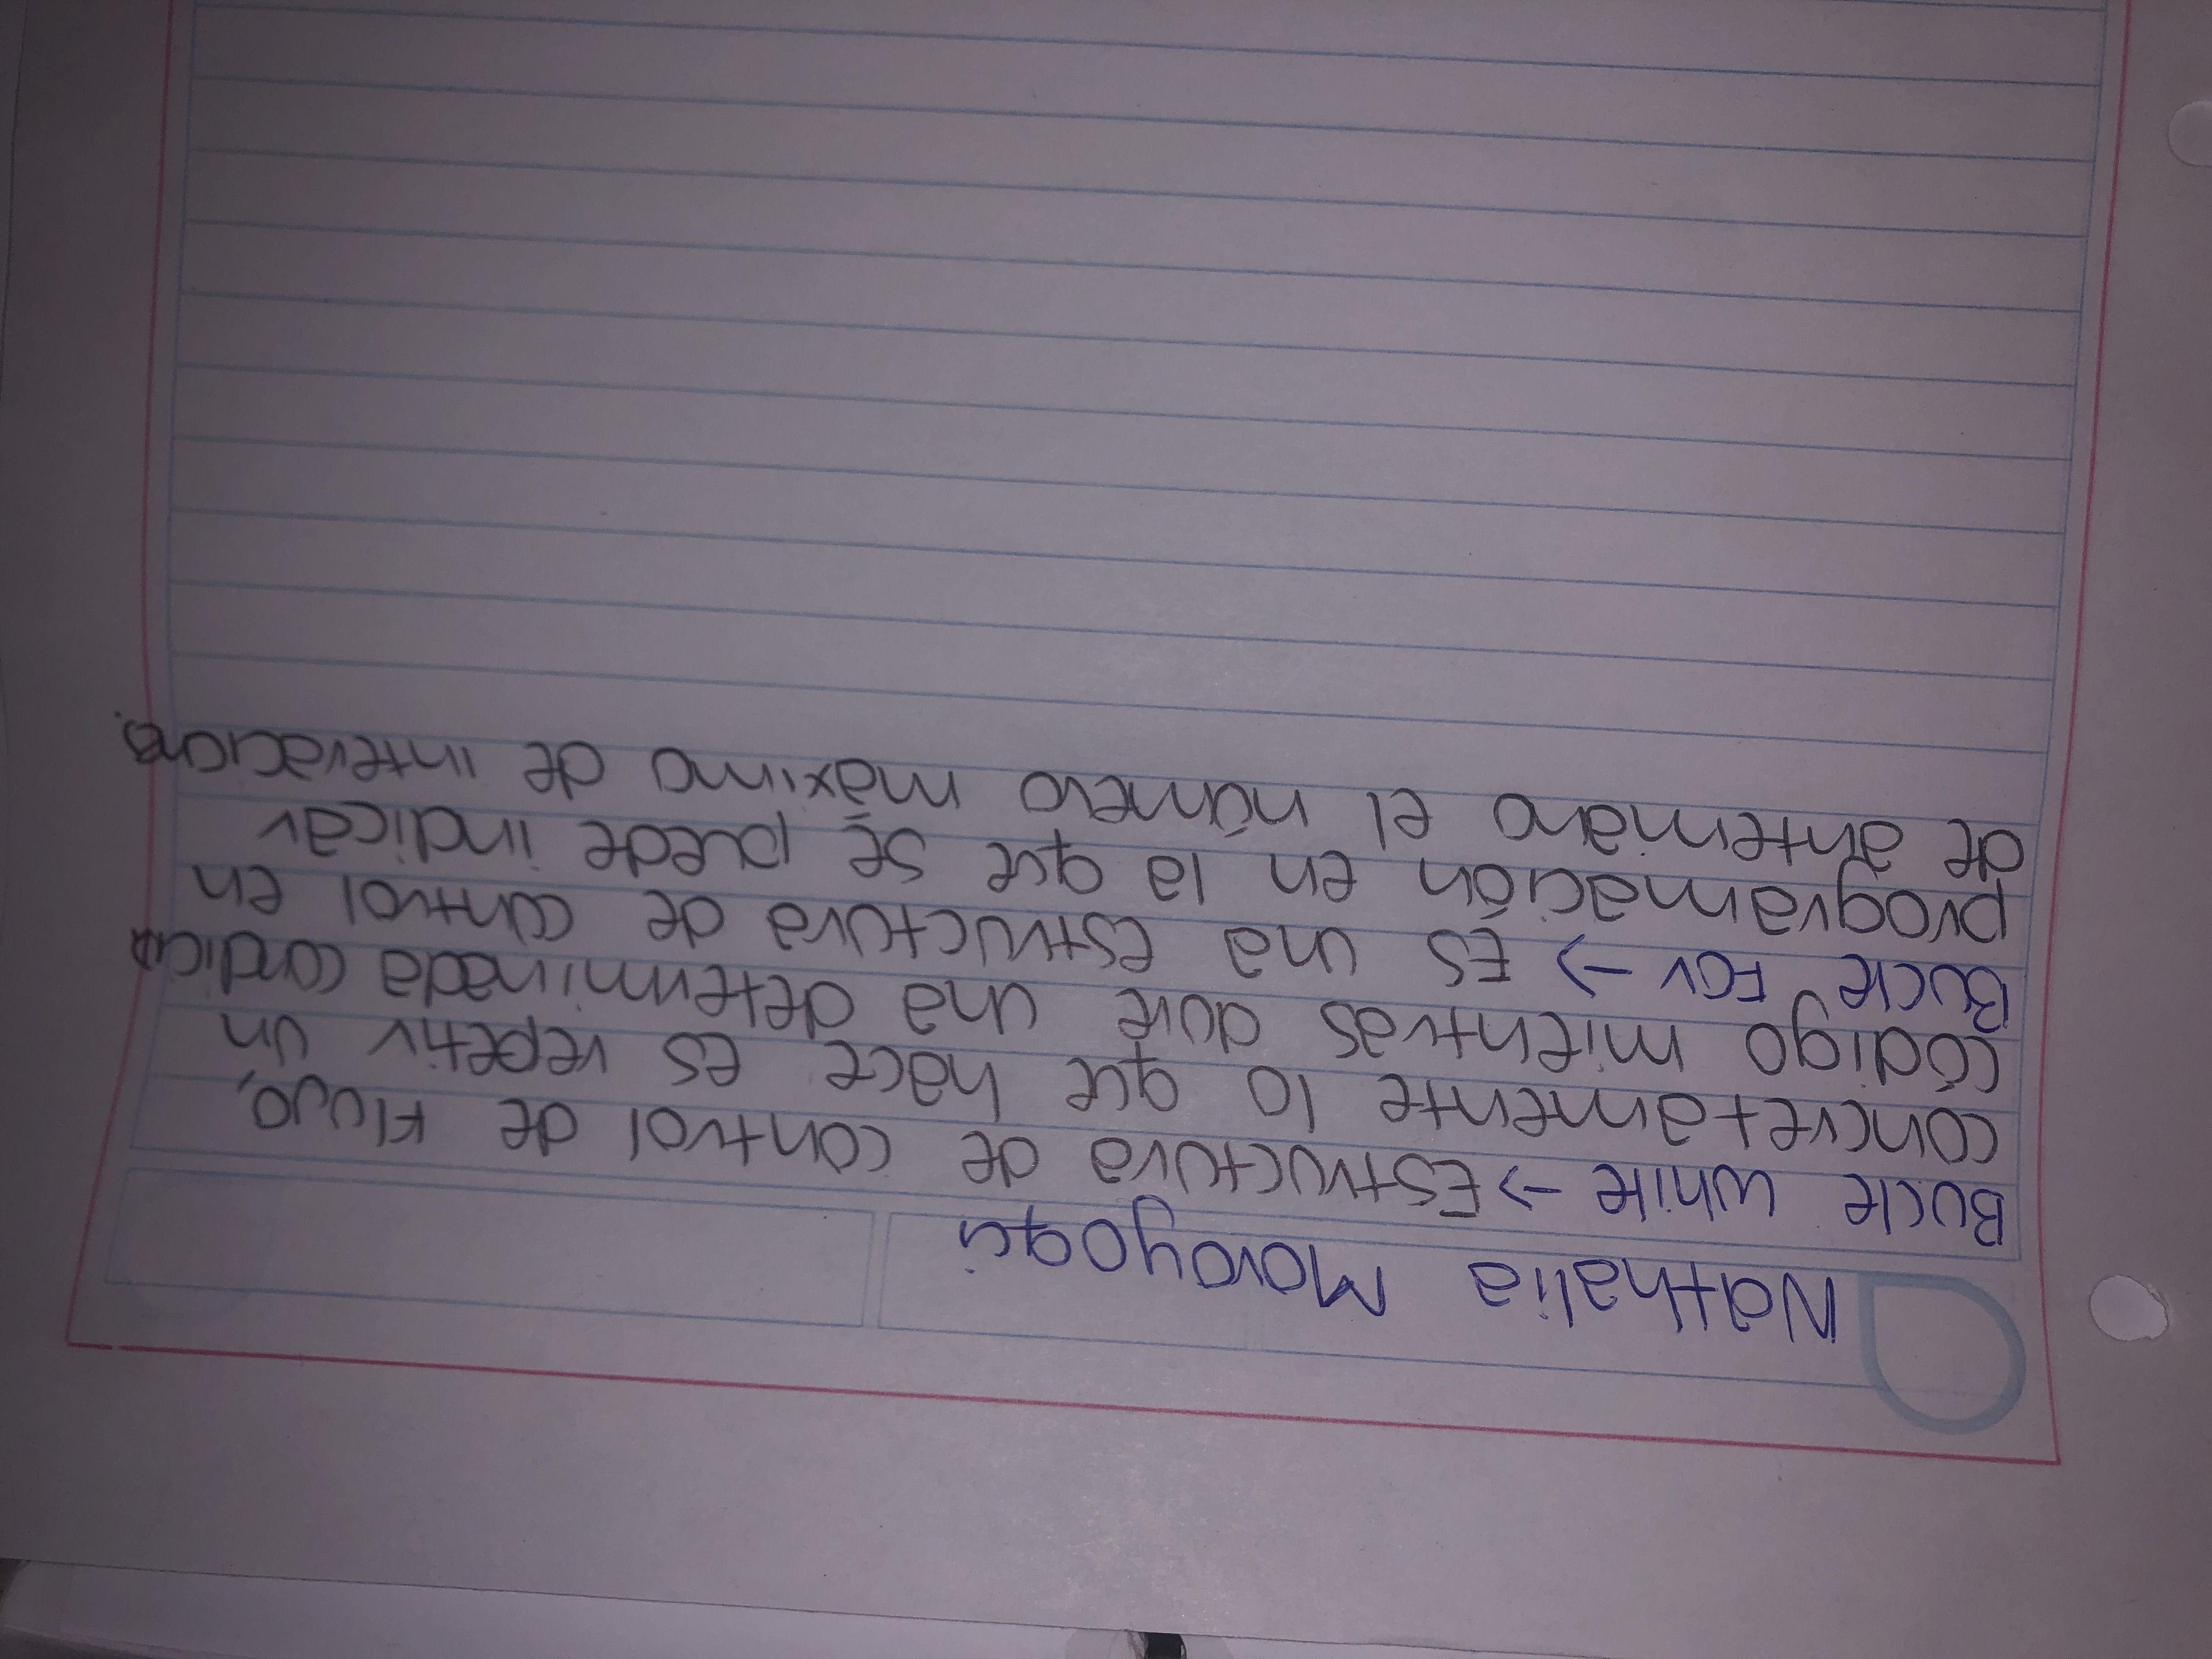 Nathalia Moroyoqui
Bucle while → Estructura de control de Flujo,
concretamente lo que hace es repetir un
código mientras dure una determinada condición
Bucle For → Es una estructura de control en
programación en la que se puede indicar
de antemano el número máximo de interaciones.